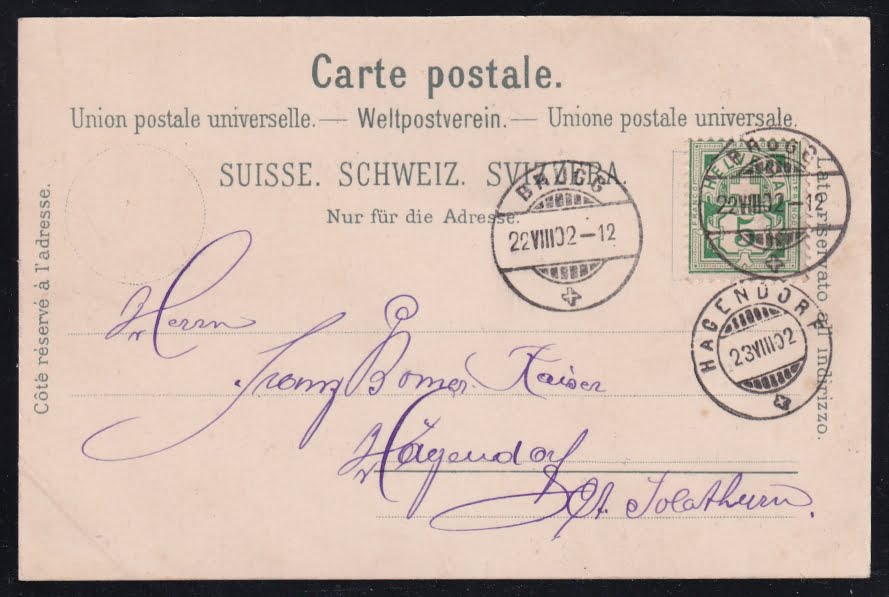 Carte postale.
Union postale universelle. — Weltpostverein. — Unione postale universale.
SUISSE. SCHWEIZ. SVIZZERA.
Nur für die Adresse.
Côté réservé à l'adresse.
Lato riservato all' indirizzo.
BRUGG
22 VIII 02 – 12
BRUGG
22 VIII 02 – 12
HELVETIA
5
HÄGENDORF
23 VIII 02
Herrn
Franz Kaiser
Hägendorf
Kt. Solothurn.